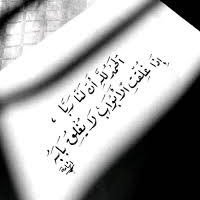 الحمد لله أن لنا ربا ،
إذا غلقت الأبواب لا يغلق بابه